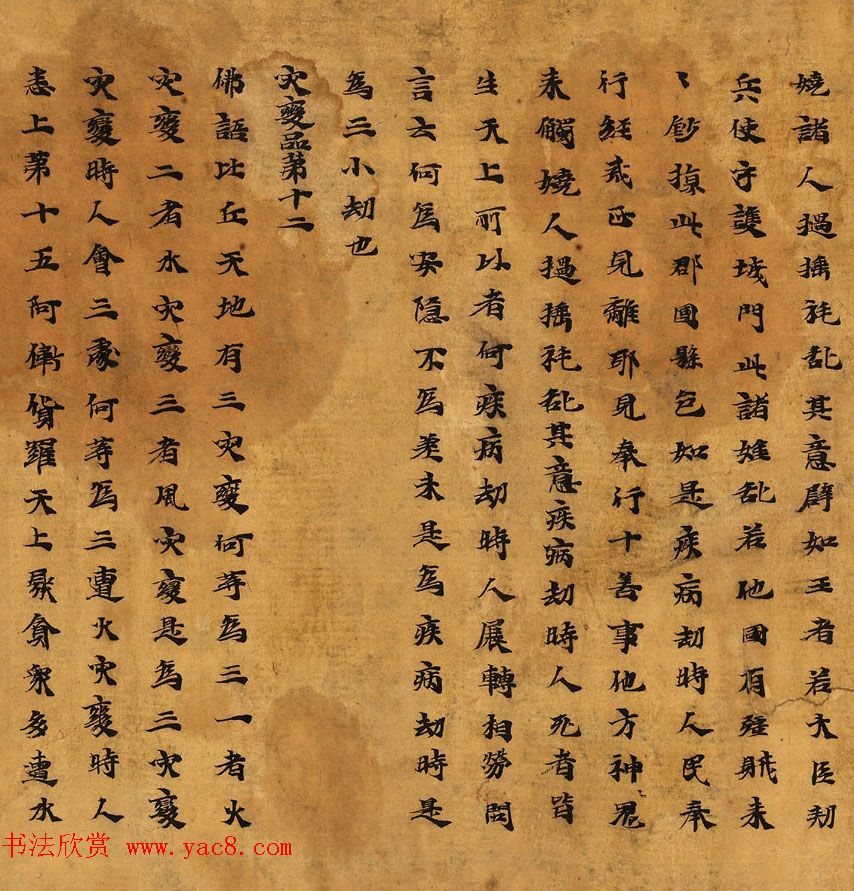 嬈諸人撾捶秏乱其意辟如王者若大臣勑
兵使守護城門此諸乱若他國有彊賊来
々鈔掠此郡國縣邑如是疾病劫時人民奉
行經戒正見離耶見奉行十善事他方神鬼
来觸嬈人撾捶秏乱其意疾病劫時人死者皆
生天上所以者何疾病劫時人展轉相勞問
言云何為安隱不為差未是為疾病劫時是
為三小劫也
灾變品第十二
佛語比丘天地有三灾變何等為三一者火
灾變二者水灾變三者風灾變是為三灾變
灾變時人會三處何等為三遭火灾變時人
悉上第十五阿衛貨羅天上聚會衆多遭水
书法欣赏 www.yac8.com